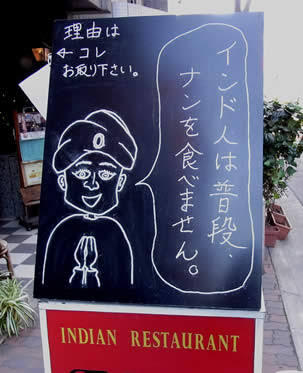 理由は
←コレ
お取り下さい。
インド人は普段、
ナンを食べません。
INDIAN RESTAURANT